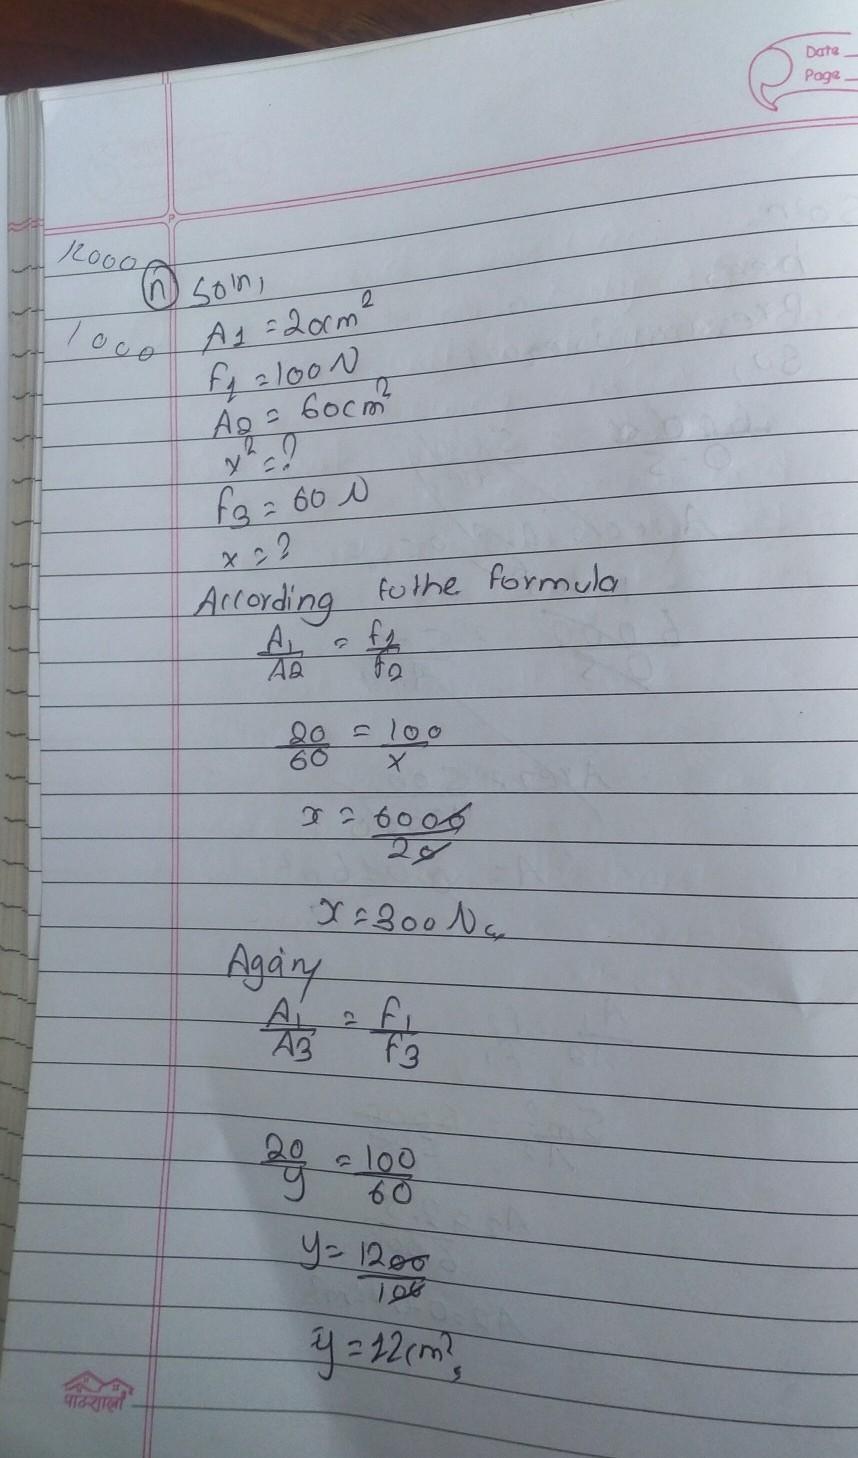 Date
Page
P
12000
(n) Soln,
1000 A1 = 20cm²
F1 = 100 N
A2 = 60cm²
x² = ?
F3 = 60 N
x = ?
According tothe formula
A1/A2 = f1/f2
20/60 = 100/x
x = 6000/20
x = 300 N
Again
A1/A3 = F1/F3
20/y = 100/60
y = 1200/100
y = 12cm²,
पाठशाला